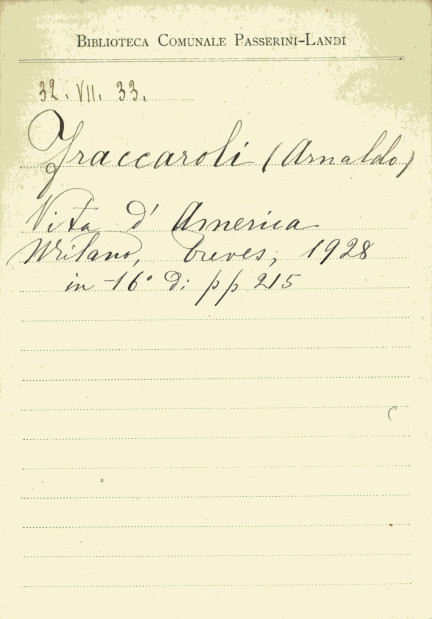 BIBLIOTECA COMUNALE PASSERINI-LANDI
32. VII. 33.
Fraccaroli (Arnaldo)
Vita d' America
Milano, Treves, 1928
in -16° di pp 215